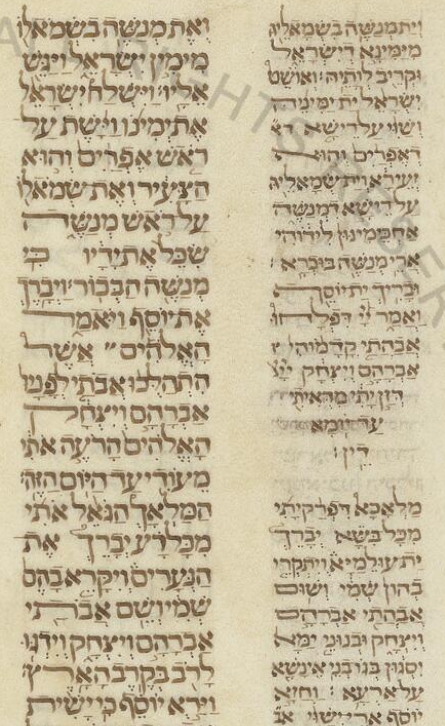 וית מנשה בשמאליה
מימינא דישראל
וקריב לותיה ואושט
ישראל ית ימיניה
ושוי על רישא
דאפרים והוא
זעירא וית שמאליה
על רישא דמנשה
אחכמינון לידוהי
ארי מנשה בוכרא
ובריך ית יוסף
ואמר יי דפלחו
אבהתי קדמוהי
אברהם ויצחק יי
דזן יתי מדאיתי
עד יומא
דין
מלאכא דפרק יתי
מכל בישא יברך
ית עולמיא ויתקרי
בהון שמי ושום
אבהתי אברהם
ויצחק וכנוני ימא
יסגון בגו בני אינשא
על ארעא וחזא
יוסף ארי ישוי
ואת מנשה בשמאלו
מימין ישראל ויגש
אליו וישלח ישראל
את ימינו וישת על
ראש אפרים והוא
הצעיר ואת שמאלו
על ראש מנשה
שכל את ידיו כי
מנשה הבכור ויברך
את יוסף ויאמר
האלהים אשר
התהלכו אבתי לפניו
אברהם ויצחק
האלהים הרעה אתי
מעודי עד היום הזה
המלאך הגאל אתי
מכל רע יברך את
הנערים ויקרא בהם
שמי ושם אבתי
אברהם ויצחק וידגו
לרב בקרב הארץ
וירא יוסף כי ישית